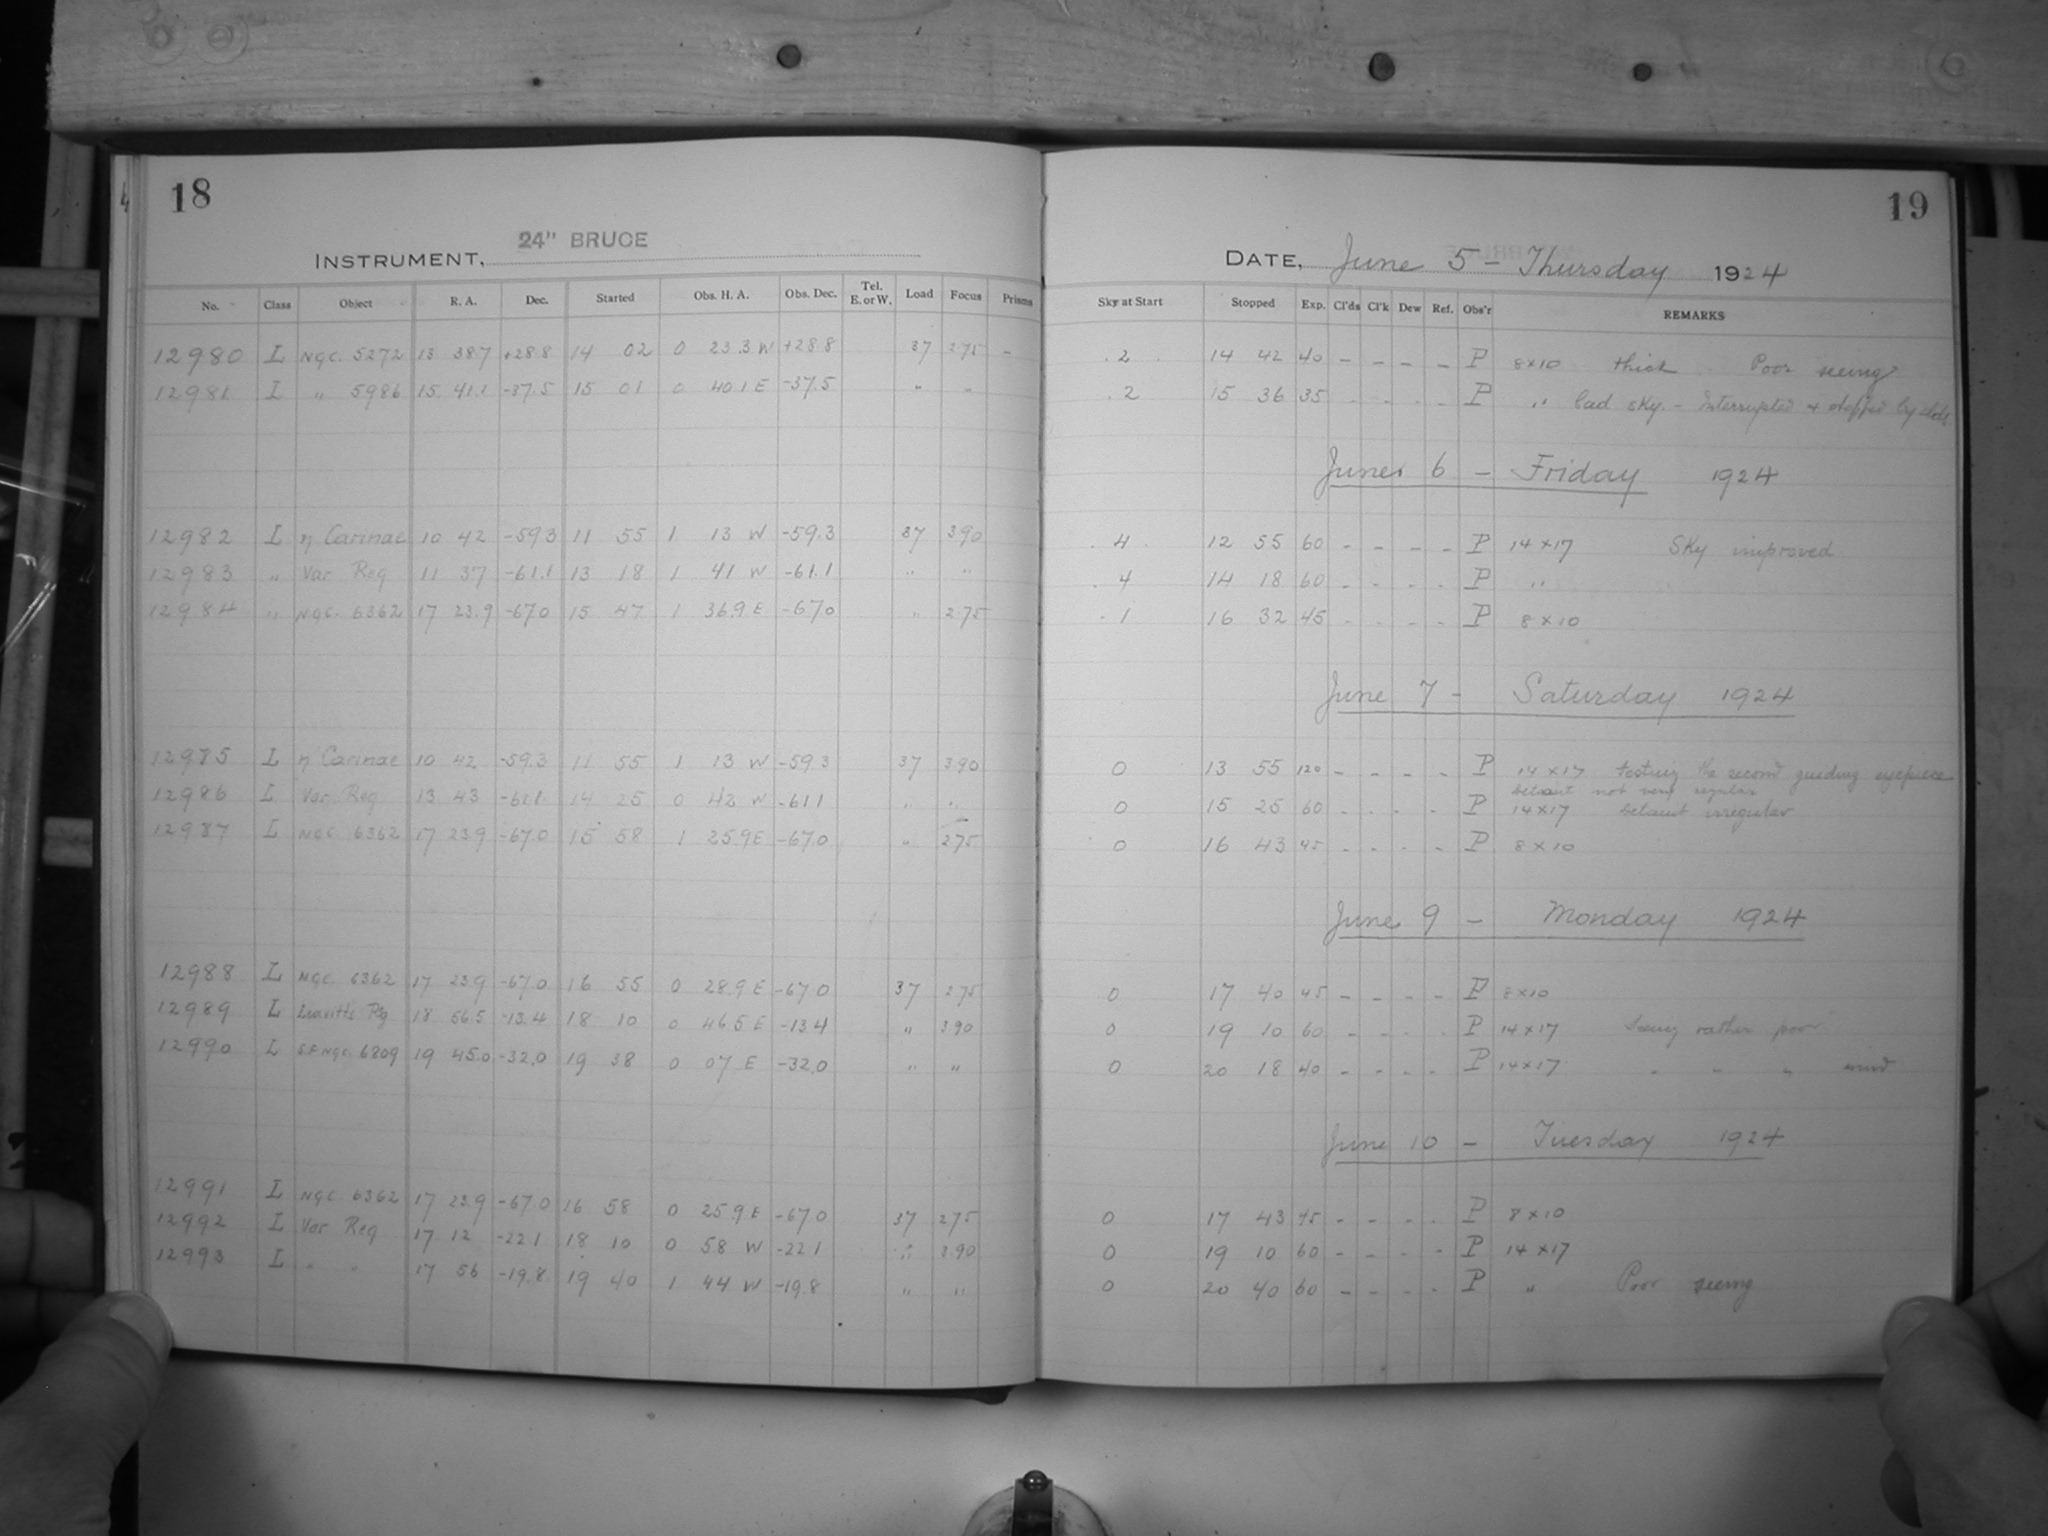 18
24" BRUCE
INSTRUMENT,
No. Class Object R. A. Dec. Started Obs. H. A. Obs. Dec. Tel. E. or W. Load Focus Prisms
12980 L NGC. 5272 13 38.7 +28.8 14 02 0 23.3 W +28.8 37 2.75 -
12981 L " 5986 15 41.1 -37.5 15 01 0 40.1 E -37.5 " "
12982 L η Carinae 10 42 -59.3 11 55 1 13 W -59.3 37 3.90
12983 " Var Reg 11 37 -61.1 13 18 1 41 W -61.1 " "
12984 " NGC. 6362 17 23.9 -67.0 15 47 1 36.9 E -67.0 " 2.75
12985 L η Carinae 10 42 -59.3 11 55 1 13 W -59.3 37 3.90
12986 L Var Reg 13 43 -61.1 14 25 0 42 W -61.1 " "
12987 L NGC. 6362 17 23.9 -67.0 15 58 1 25.9 E -67.0 " 2.75
12988 L NGC. 6362 17 23.9 -67.0 16 55 0 28.9 E -67.0 37 2.75
12989 L Leavitt's Reg 18 56.5 -13.4 18 10 0 46.5 E -13.4 " 3.90
12990 L S.F NGC. 6809 19 45.0 -32.0 19 38 0 07 E -32.0 " "
12991 L NGC. 6362 17 23.9 -67.0 16 58 0 25.9 E -67.0 37 2.75
12992 L Var Reg 17 12 -22.1 18 10 0 58 W -22.1 " 3.90
12993 L " " 17 56 -19.8 19 40 1 44 W -19.8 " "
19
DATE, June 5 - Thursday 1924
Sky at Start Stopped Exp. Cl'ds Cl'k Dew Ref. Obs'r REMARKS
.2 14 42 40 - - - - P 8x10 thick Poor seeing
.2 15 36 35 - - - - P " bad sky. - Interrupted & stopped by clds.
June 6 - Friday 1924
.4 12 55 60 - - - - P 14x17 Sky improved
.4 14 18 60 - - - - P "
.1 16 32 45 - - - - P 8x10
June 7 - Saturday 1924
0 13 55 120 - - - - P 14x17 testing the second guiding eyepiece
not very regular
0 15 25 60 - - - - P 14x17 irregular
0 16 43 45 - - - - P 8x10
June 9 - Monday 1924
0 17 40 45 - - - - P 8x10
0 19 10 60 - - - - P 14x17 Seeing rather poor
0 20 18 40 - - - - P 14x17 " " " wind
June 10 - Tuesday 1924
0 17 43 45 - - - - P 8x10
0 19 10 60 - - - - P 14x17
0 20 40 60 - - - - P " Poor seeing